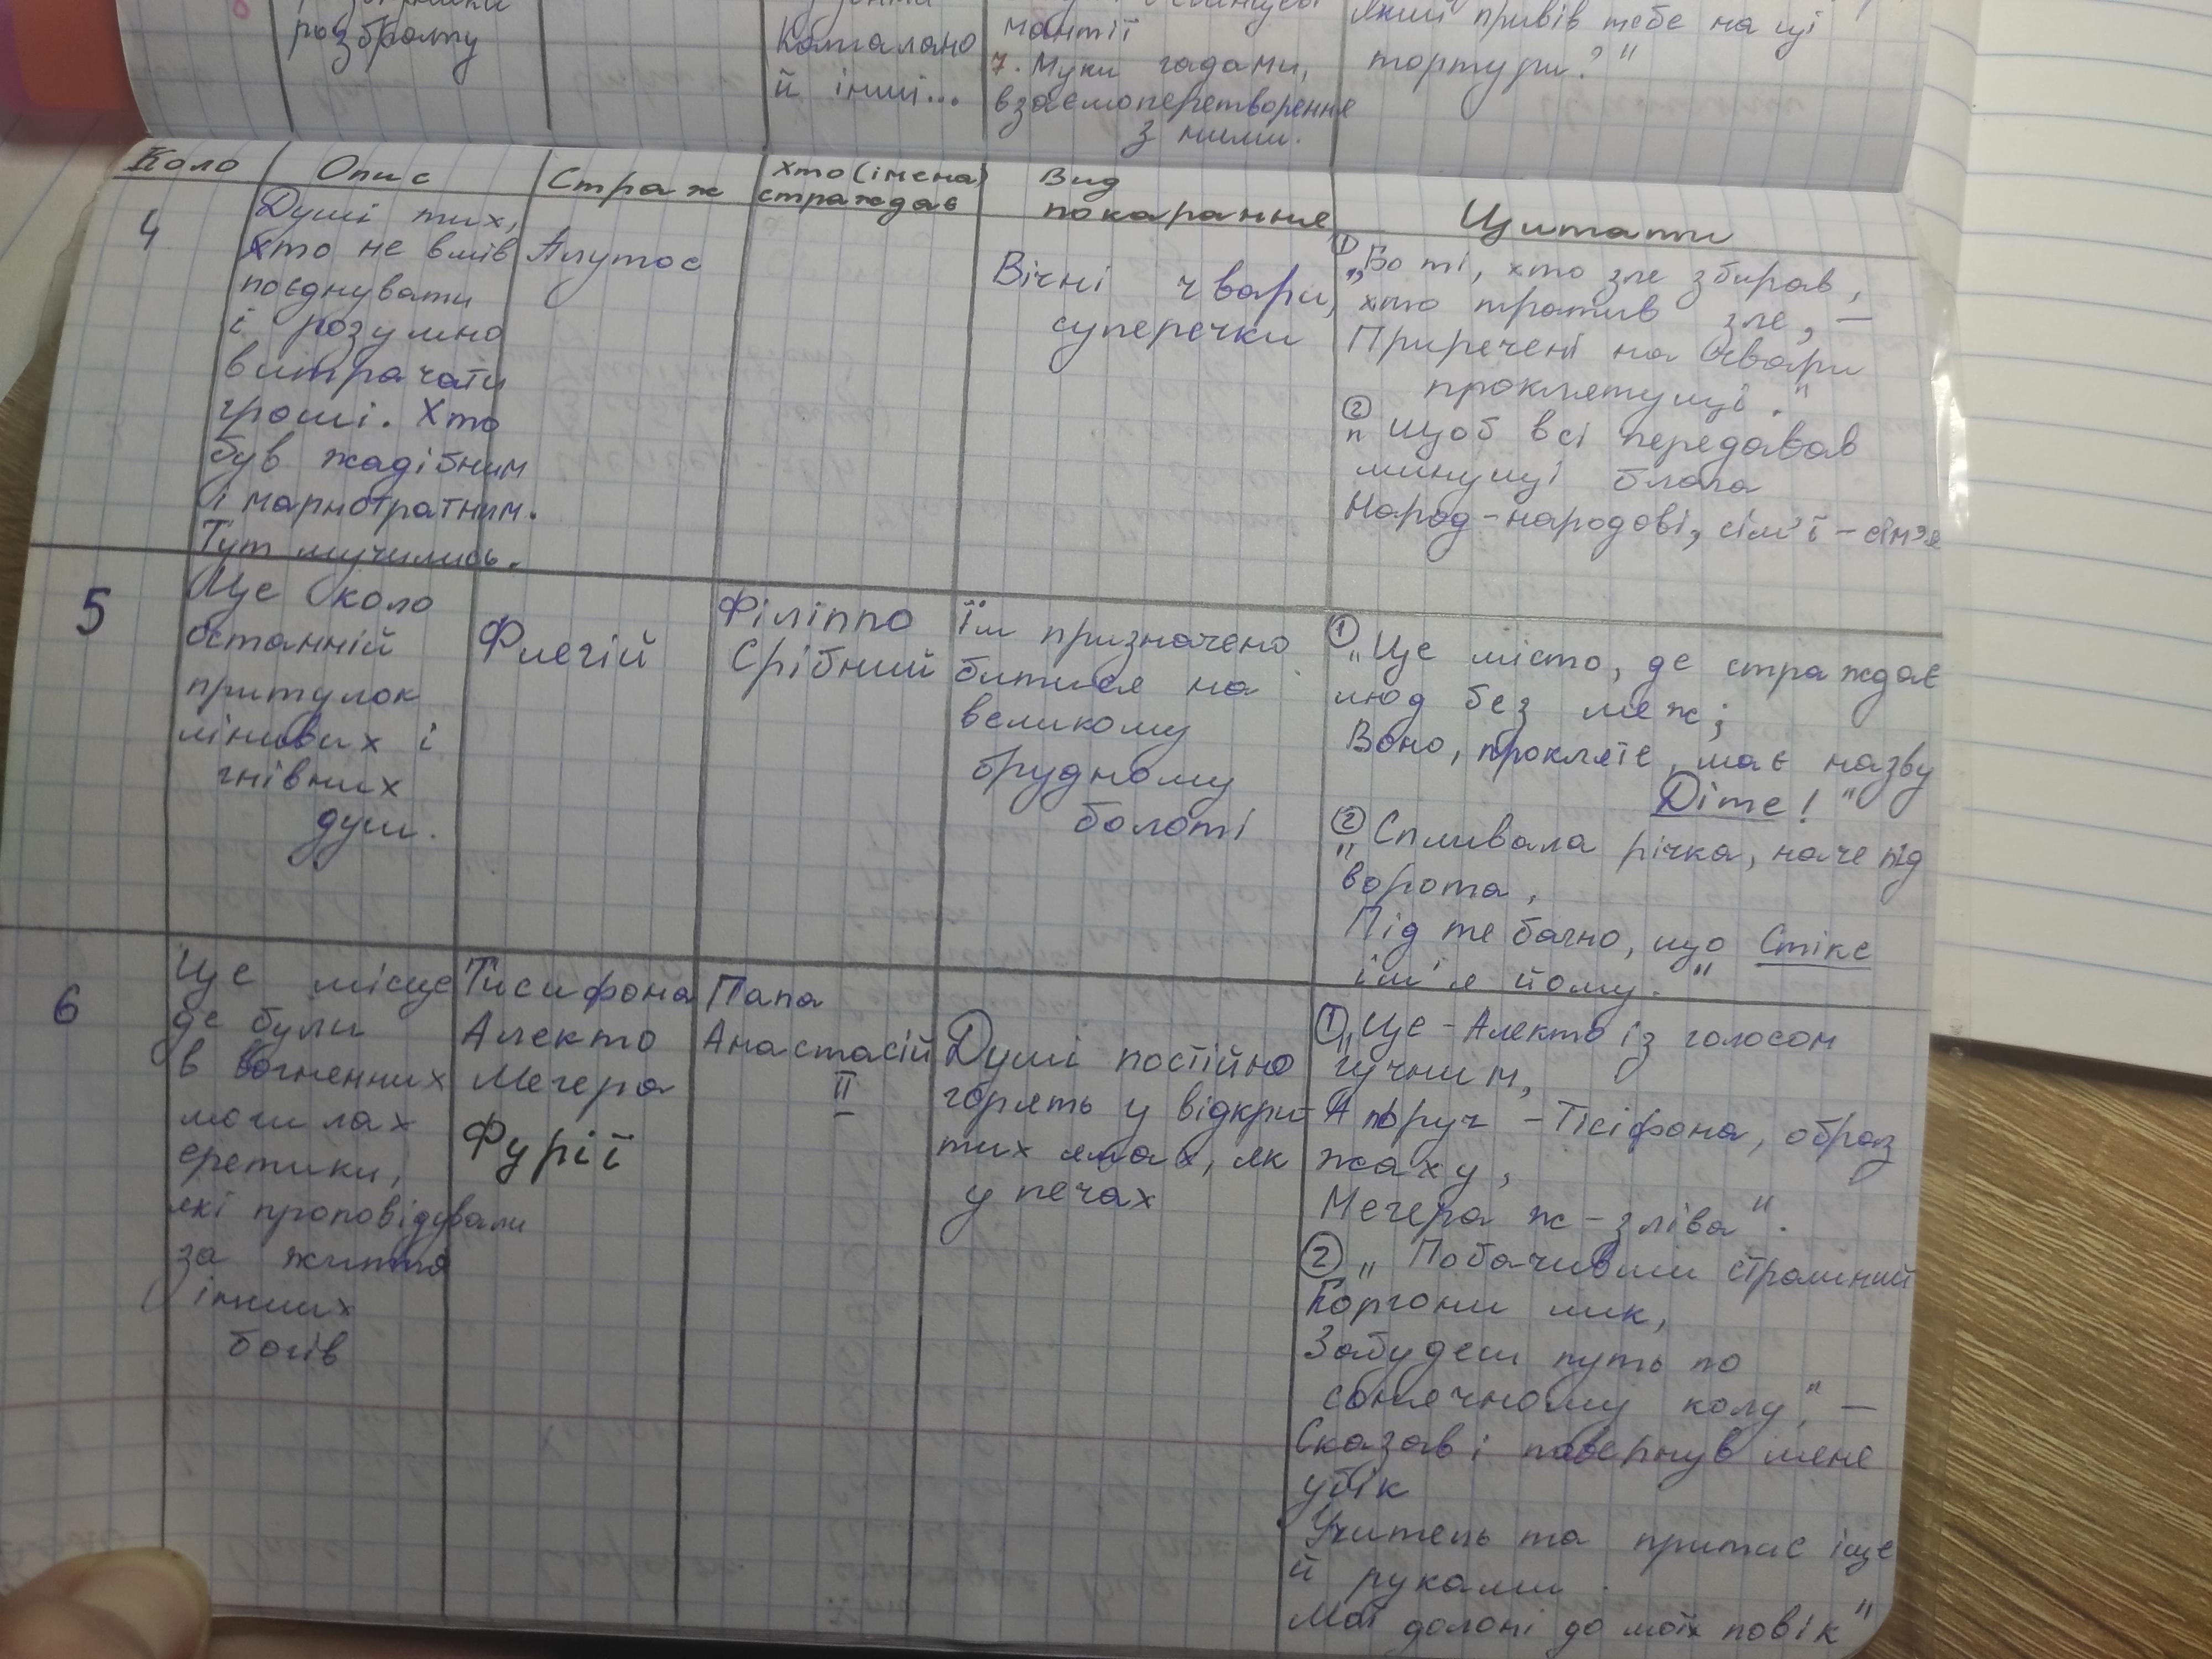 розбрату
Каталано
й інші...
мантії
7. Муки гадами,
взаємоперетворення
з ними.
який привів тебе на ці
тортури?"
Коло
Опис
Страж
Хто (імена)
страждає
Вид
покарання
Цитати
4
Душі тих,
хто не вмів
поєднувати
і розумно
витрачати
гроші. Хто
був жадібним
і марнотратним.
Тут мучились.
Плутос
Вічні чвари,
суперечки
① „Бо ті, хто зле збирав,
хто тратив зле, —
Приречені на чвари
проклятущі."
②
„Щоб всі передавав
минущі блага
Народ-народові, сім'ї – сім'я
5
Це коло
останній
притулок
лінивих і
гнівних
душ.
Флегій
Філіппо
Срібний
Їм призначено
битися на
великому
брудному
болоті
①
„Це місто, де страждає
люд без меж;
Воно, прокляте, має назву
Діте!"
② Спливала річка, наче під
„ворота,
Під те багно, що Стікс
ім'я йому."
6
Це місце
де були
в вогненних
могилах
єретики,
які проповідували
за життя
інших
богів
Тисифона
Алекто
Мегера
Фурії
Папа
Анастасій
II
Душі постійно
горять у відкри-
тих ямах, як
у печах
① „Це – Алекто із голосом
гучним,
А поруч – Тісіфона, образ
жаху,
Мегера ж – зліва".
② „Побачивши страшний
Горгони лик,
Забудеш путь по
сонячному колу", —
Сказав і повернув мене
убік
Учитель та притис іще
й руками
Мої долоні до моїх повік"